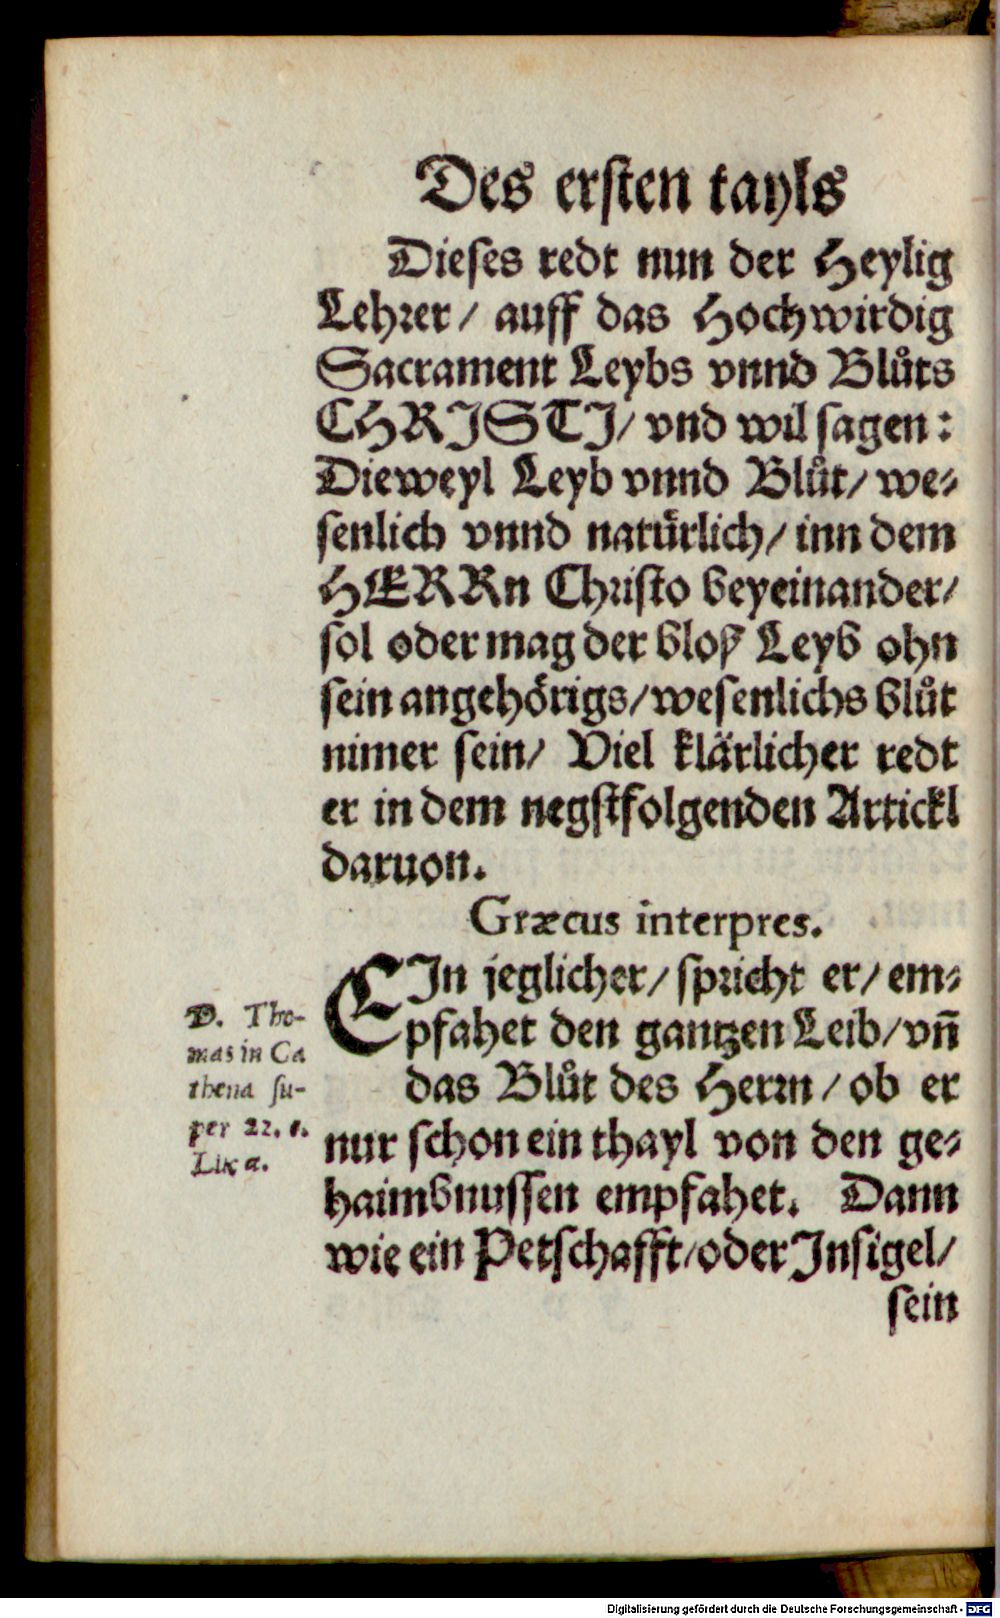 Des ersten tayls
Dieses redt nun der Heylig
Lehrer/ auff das Hochwirdig
Sacrament Leybs vnnd Blůts
CHRISTI/ vnd wil sagen:
Dieweyl Leyb vnnd Blůt/ we-
senlich vnnd natürlich/ inn dem
HERRn Christo beyeinander/
sol oder mag der bloß Leyb ohn
sein angehörigs/ wesenlichs blůt
nimer sein/ Viel klärlicher redt
er in dem negstfolgenden Artickl
daruon.
Græcus interpres.
EIn jeglicher/ spricht er/ em-
pfahet den gantzen Leib/ vñ
das Blůt des Herrn/ ob er
nur schon ein thayl von den ge-
haimbnussen empfahet. Dann
wie ein Petschafft/ oder Insigel/
sein
D. Tho-
mas in Ca
thena su-
per 22. c.
Luca.
Digitalisierung gefördert durch die Deutsche Forschungsgemeinschaft - DFG